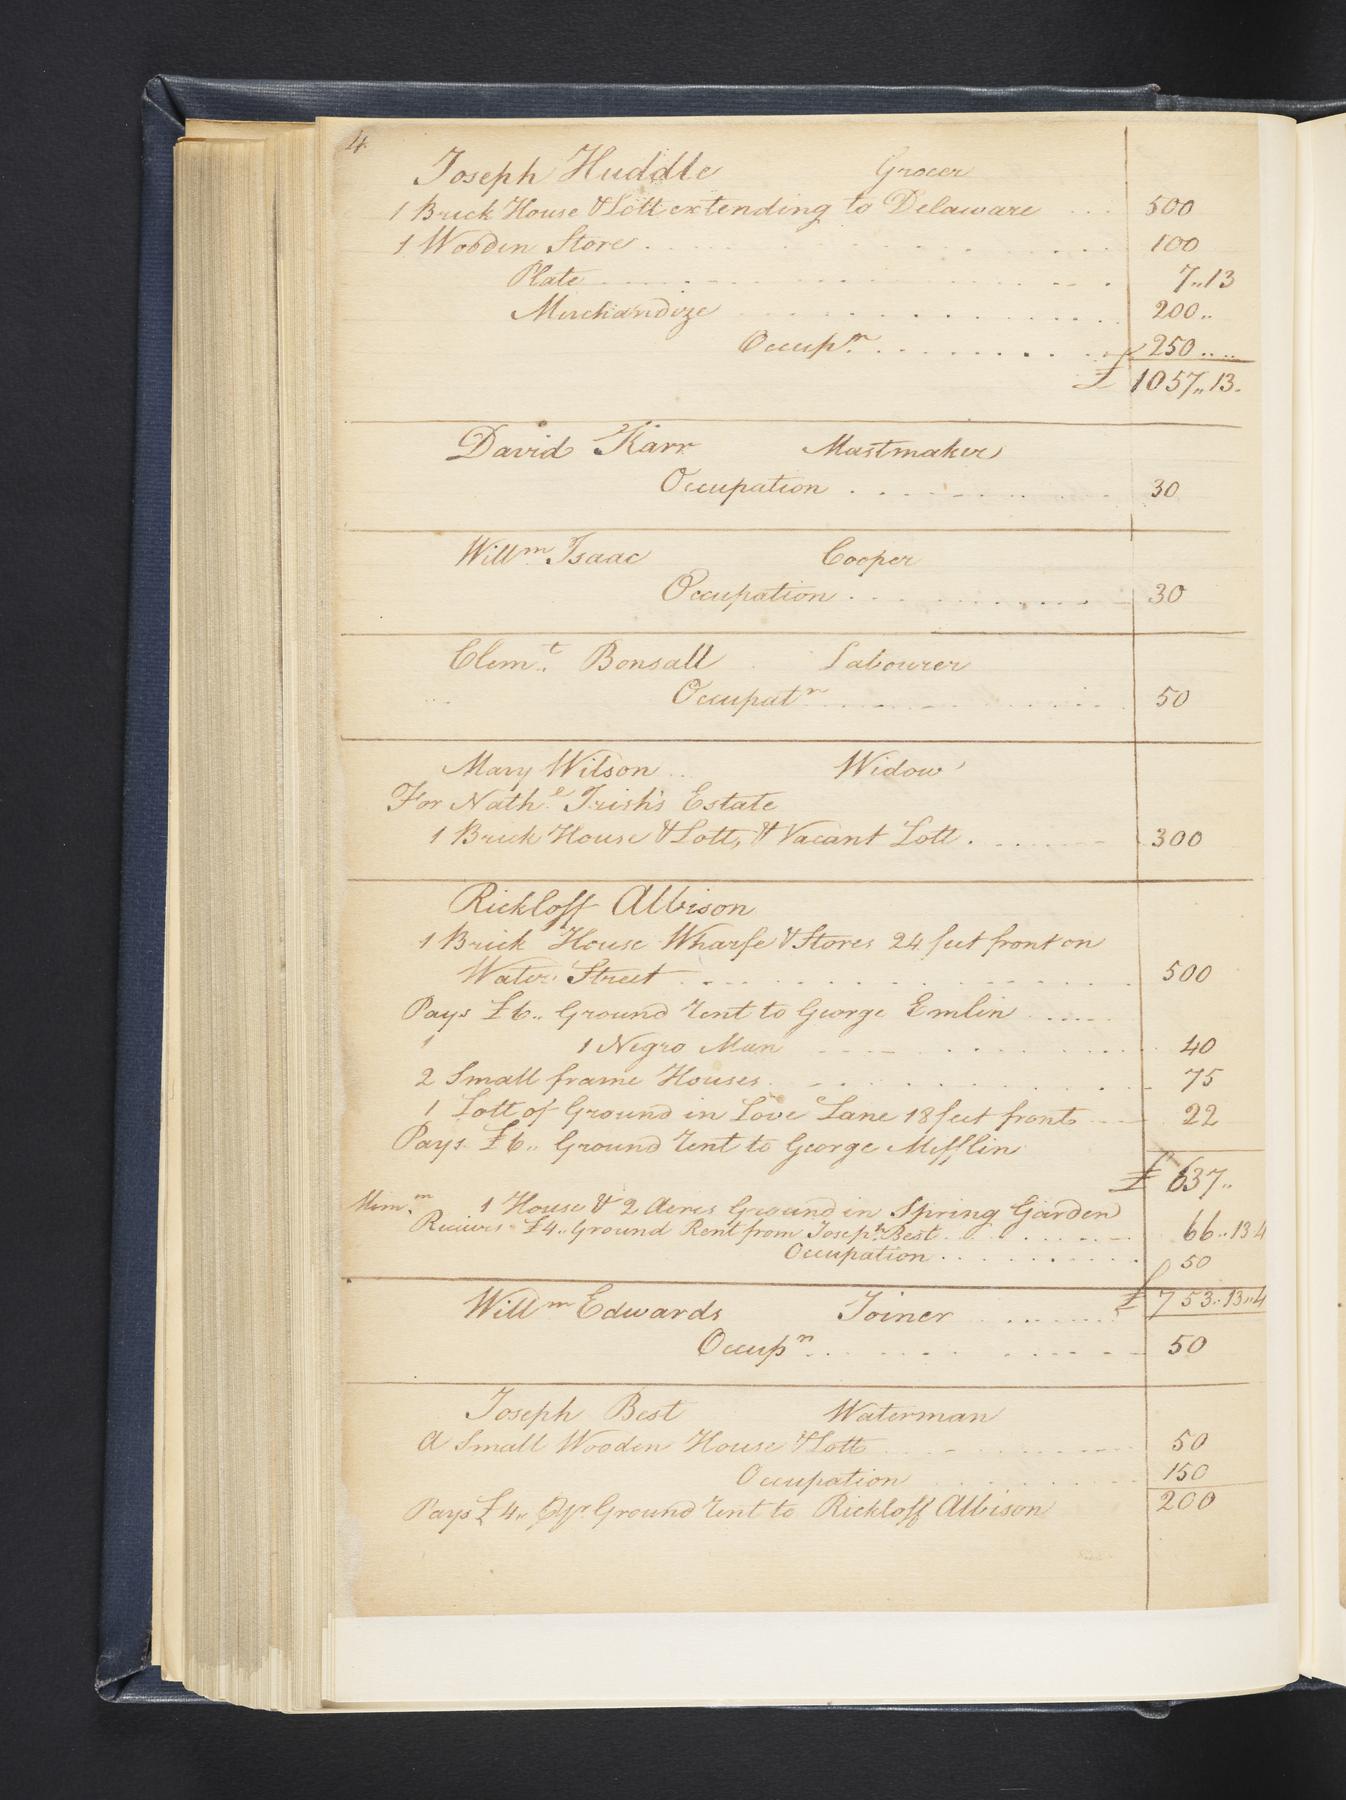 4
Joseph Huddle Grocer
1 Brick House & Lott extending to Delaware ... 500
1 Wooden Store ... 100
Plate ... 7,,13
Merchandize ... 200,,
Occupn. ... 250
£ 1057,,13
David Karr Mastmaker
Occupation ... 30
Willm. Isaac Cooper
Occupation ... 30
Clemt. Bonsall Labourer
Occupatn ... 50
Mary Wilson Widow
For Nathl. Irish's Estate
1 Brick House & Lott, & Vacant Lott ... 300
Rickloff Albison
1 Brick House Wharfe & Stores 24 feet front on
Water Street ... 500
Pays £6,, Ground Rent to George Emlin ...
1 Negro Man ... 40
2 Small frame Houses ... 75
1 Lott of Ground in Love Lane 18 feet front ... 22
Pays £6,, Ground Rent to George Mifflin
£ 637,,
Memm. 1 House & 2 Acres Ground in Spring Garden
Recives £4,, Ground Rent from Joseph Best ... 66,,13 4
Occupation ... 50
£ 753,,13,,4
Willm Edwards Joiner ...
Occupn ... 50
Joseph Best Waterman
A Small Wooden House & Lott ... 50
Occupation ... 150
Pays £4,, Ground Rent to Rickloff Albison 200